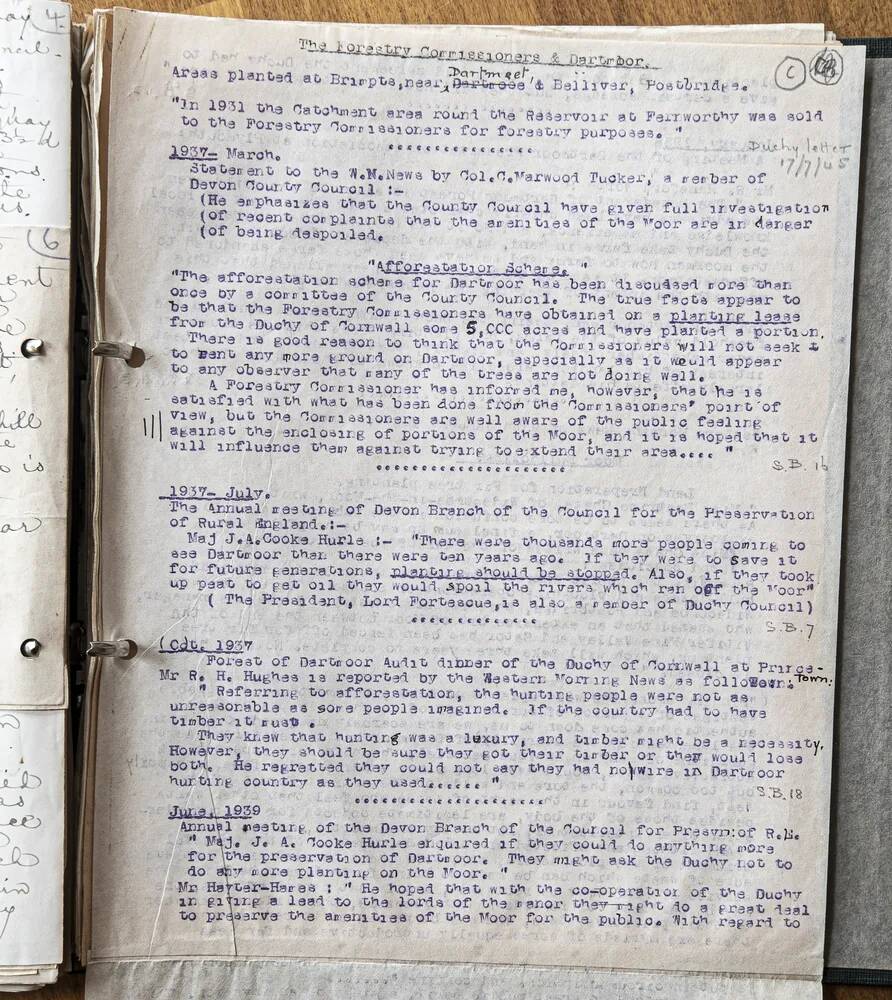 ay 4.
ncil
quay
3½d
ons.
le
us.
6
ent
hill
e
o is
ar
n
ied
as
in
The Forestry Commissioners & Dartmoor.
C
Dartmeet,
Areas planted at Brimpts,near & Belliver, Postbridge.
"In 1931 the Catchment area round the Reservoir at Fernworthy was sold
to the Forestry Commissioners for forestry purposes. "
Duchy letter
17/7/45
1937- March.
Statement to the W.M.News by Col.C.Marwood Tucker, a member of
Devon County Council :-
(He emphasizes that the County Council have given full investigation
(of recent complaints that the amenities of the Moor are in danger
(of being despoiled.
"Afforestation Scheme. "
"The afforestation scheme for Dartmoor has been discussed more than
once by a committee of the County Council. The true facts appear to
be that the Forestry Commissioners have obtained on a planting lease
from the Duchy of Cornwall some 5,000 acres and have planted a portion.
There is good reason to think that the Commissioners will not seek
to rent any more ground on Dartmoor, especially as it would appear
to any observer that many of the trees are not doing well.
A Forestry Commissioner has informed me, however, that he is
satisfied with what has been done from the Commissioners' point of
view, but the Commissioners are well aware of the public feeling
against the enclosing of portions of the Moor, and it is hoped that it
will influence them against trying to extend their area.... "
S.B. 16
1937- July.
The Annual meeting of Devon Branch of the Council for the Preservation
of Rural England.:-
Maj J.A.Cooke Hurle :- "There were thousands more people coming to
see Dartmoor than there were ten years ago. If they were to save it
for future generations, planting should be stopped. Also, if they took
up peat to get oil they would spoil the rivers which ran off the Moor"
( The President, Lord Fortescue,is also a member of Duchy Council)
S.B.7
Oct. 1937
Forest of Dartmoor Audit dinner of the Duchy of Cornwall at Prince-
Town:
Mr R. H. Hughes is reported by the Western Morning News as follows:
" Referring to afforestation, the hunting people were not as
unreasonable as some people imagined. If the country had to have
timber it must .
They knew that hunting was a luxury, and timber might be a necessity.
However, they should be sure they got their timber or they would lose
both. He regretted they could not say they had no wire in Dartmoor
hunting country as they used...... "
S.B.18
June, 1939
Annual meeting of the Devon Branch of the Council for Presvn:of R.E.
" Maj. J. A. Cooke Hurle enquired if they could do anything more
for the preservation of Dartmoor. They might ask the Duchy not to
do any more planting on the Moor. "
Mr Hayter-Hames : " He hoped that with the co-operation of the Duchy
in giving a lead to the lords of the manor they might do a great deal
to preserve the amenities of the Moor for the public. With regard to